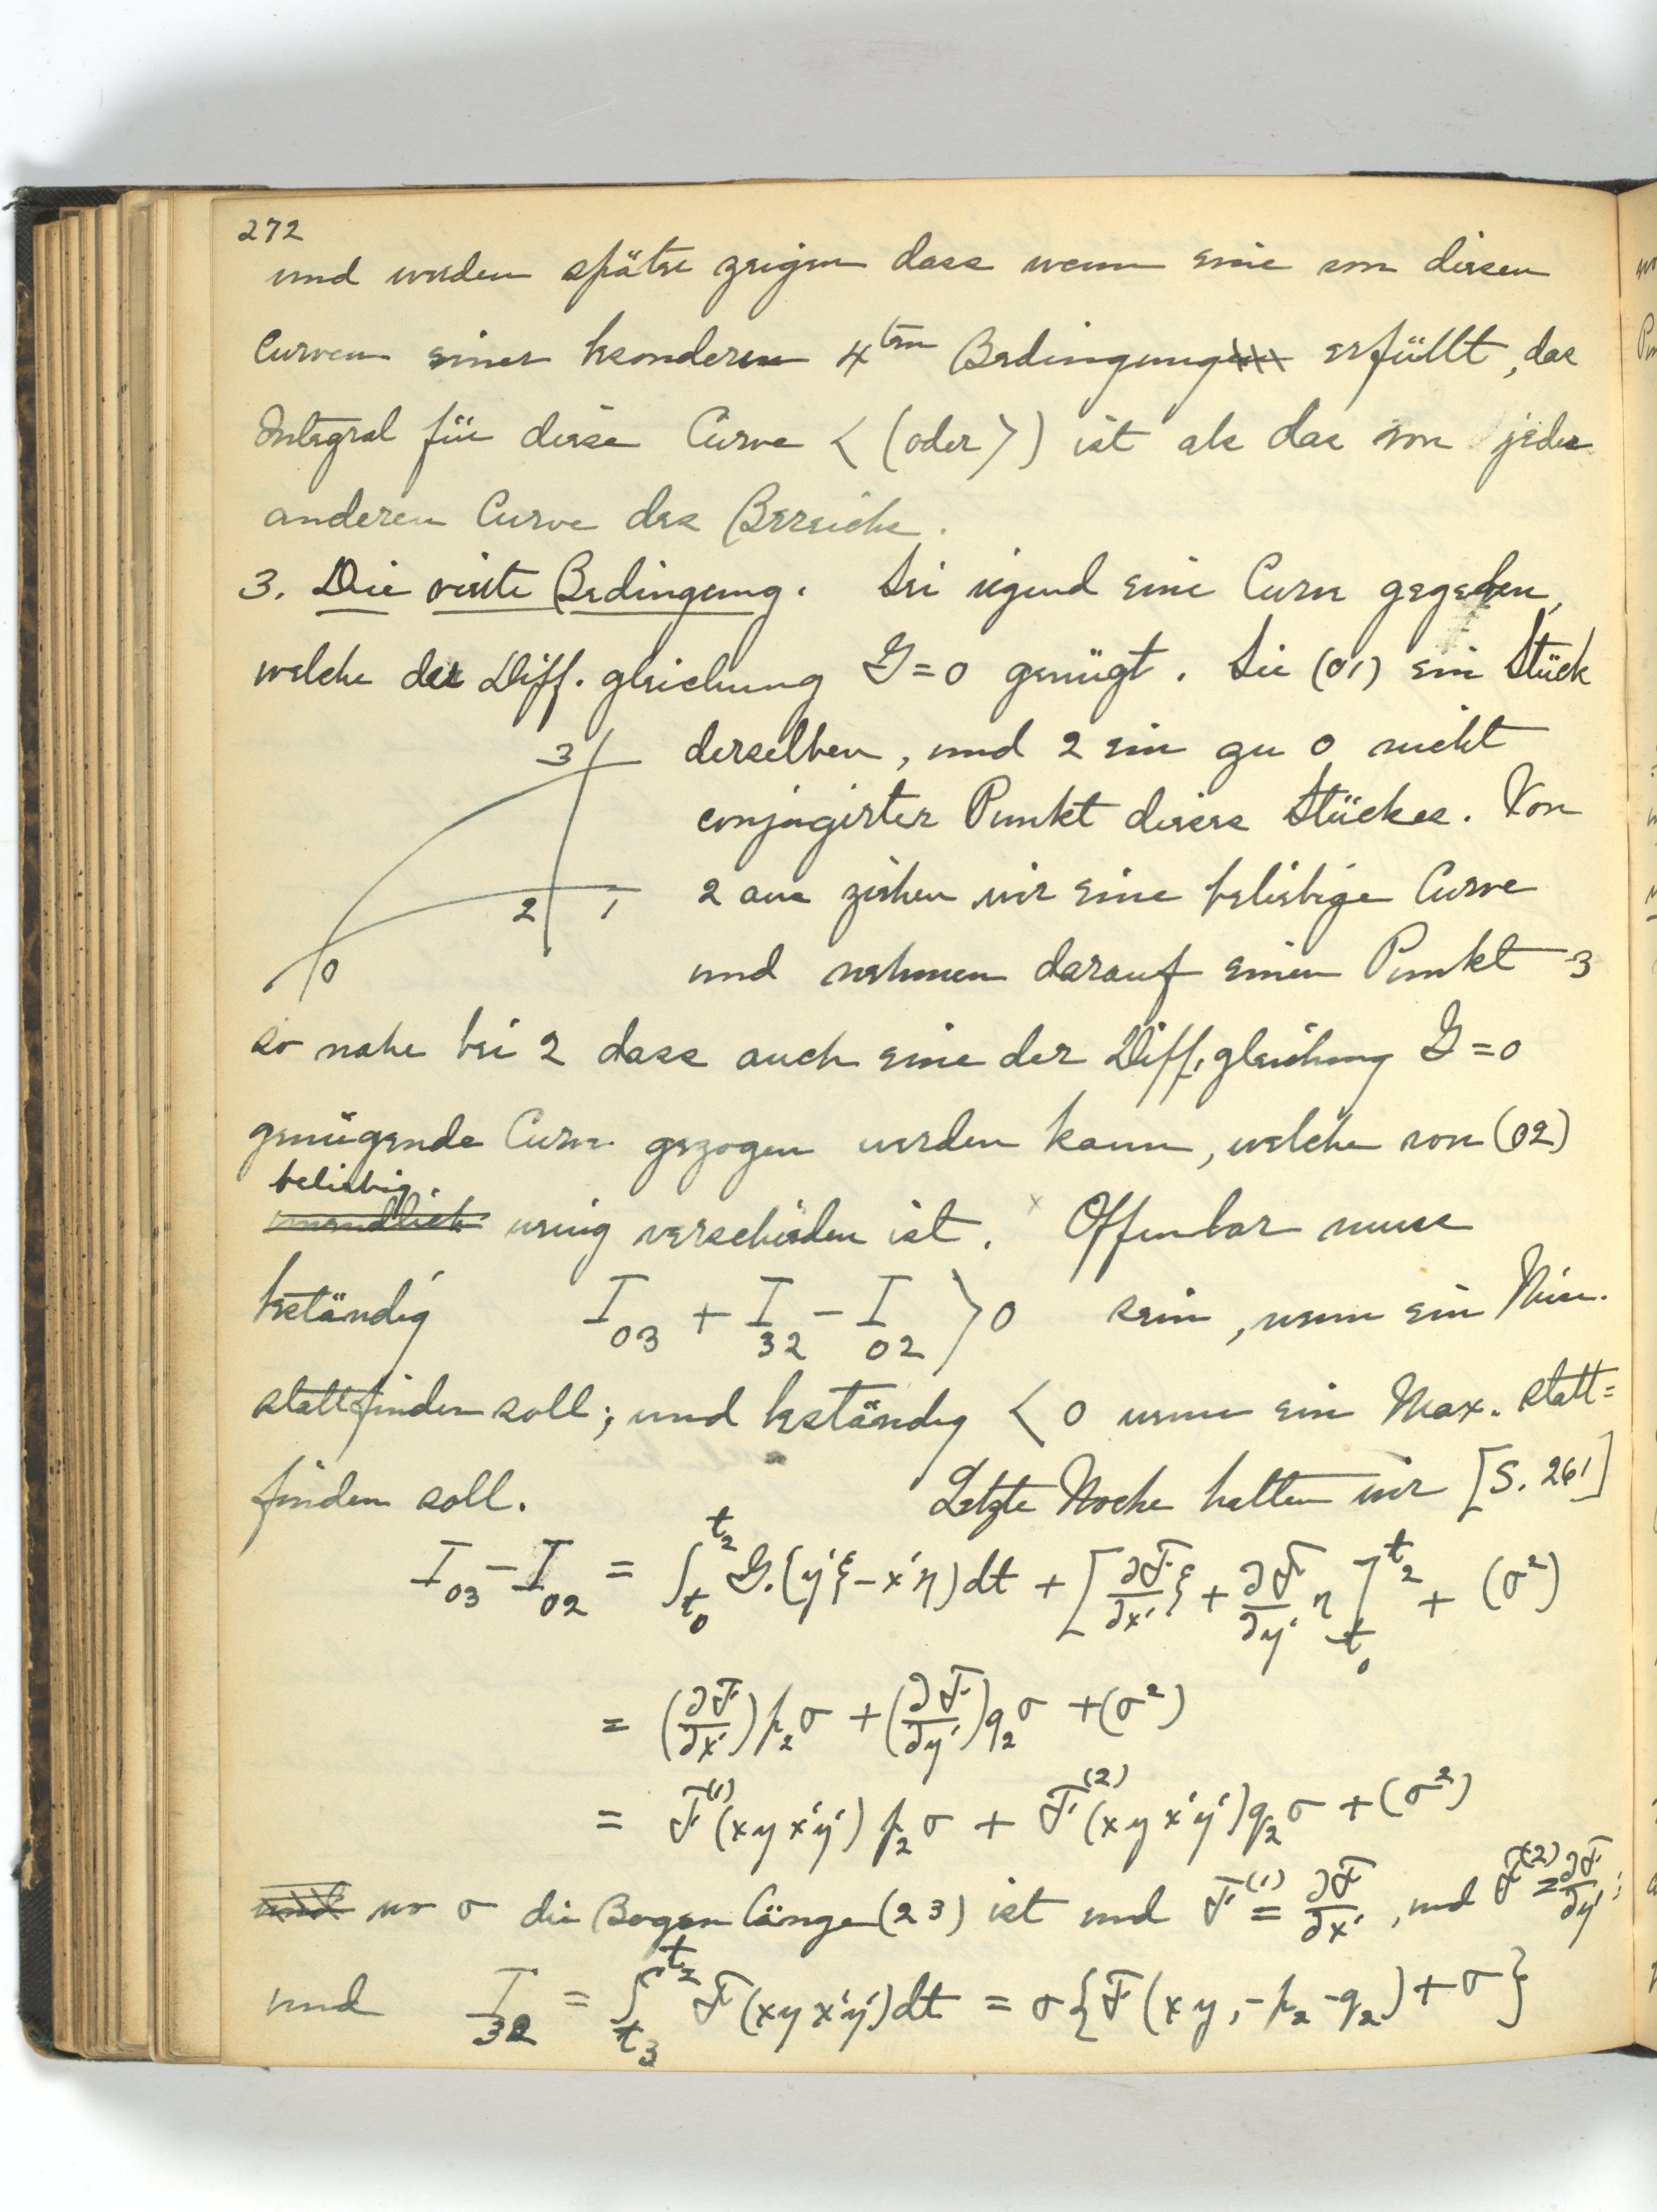 272
und werden später zeigen dass wenn eine von diesen
Curven einer besonderen 4ten Bedingung erfüllt, das
Integral für diese Curve < (oder >) ist als das von jeder
anderen Curve des Bereichs.
3. Die vierte Bedingung. Sei irgend eine Curve gegeben,
welche der Diff. gleichung G=0 genügt. Sei (01) ein Stück
derselben, und 2 ein zu 0 nicht
conjugirter Punkt dieses Stückes. Von
2 aus ziehen wir eine beliebige Curve
und nehmen darauf einen Punkt 3
3
2 1
0
so nahe bei 2 dass auch eine der Diff. gleichung G=0
genügende Curve gezogen werden kann, welche von (02)
beliebig
unendlich wenig verschieden ist. Offenbar muss
beständig I₀₃ + I₃₂ − I₀₂ > 0 sein, wenn ein Min.
stattfinden soll; und beständig < 0 wenn ein Max. statt=
finden soll. Letzte Woche hatten wir [S. 261]
I₀₃ − I₀₂ = ∫_{t₀}^{t₂} G.(y'ξ − x'η)dt + [∂F/∂x' ξ + ∂F/∂y' η]_{t₀}^{t₂} + (σ²)
= (∂F/∂x')p₂σ + (∂F/∂y')q₂σ + (σ²)
= F⁽¹⁾(xyx'y')p₂σ + F⁽²⁾(xyx'y')q₂σ + (σ²)
und wo σ die Bogen Länge (23) ist und F⁽¹⁾ = ∂F/∂x', und F⁽²⁾ = ∂F/∂y';
und I₃₂ = ∫_{t₃}^{t₂} F(xyx'y')dt = σ{F(xy, −p₂ −q₂) + σ}